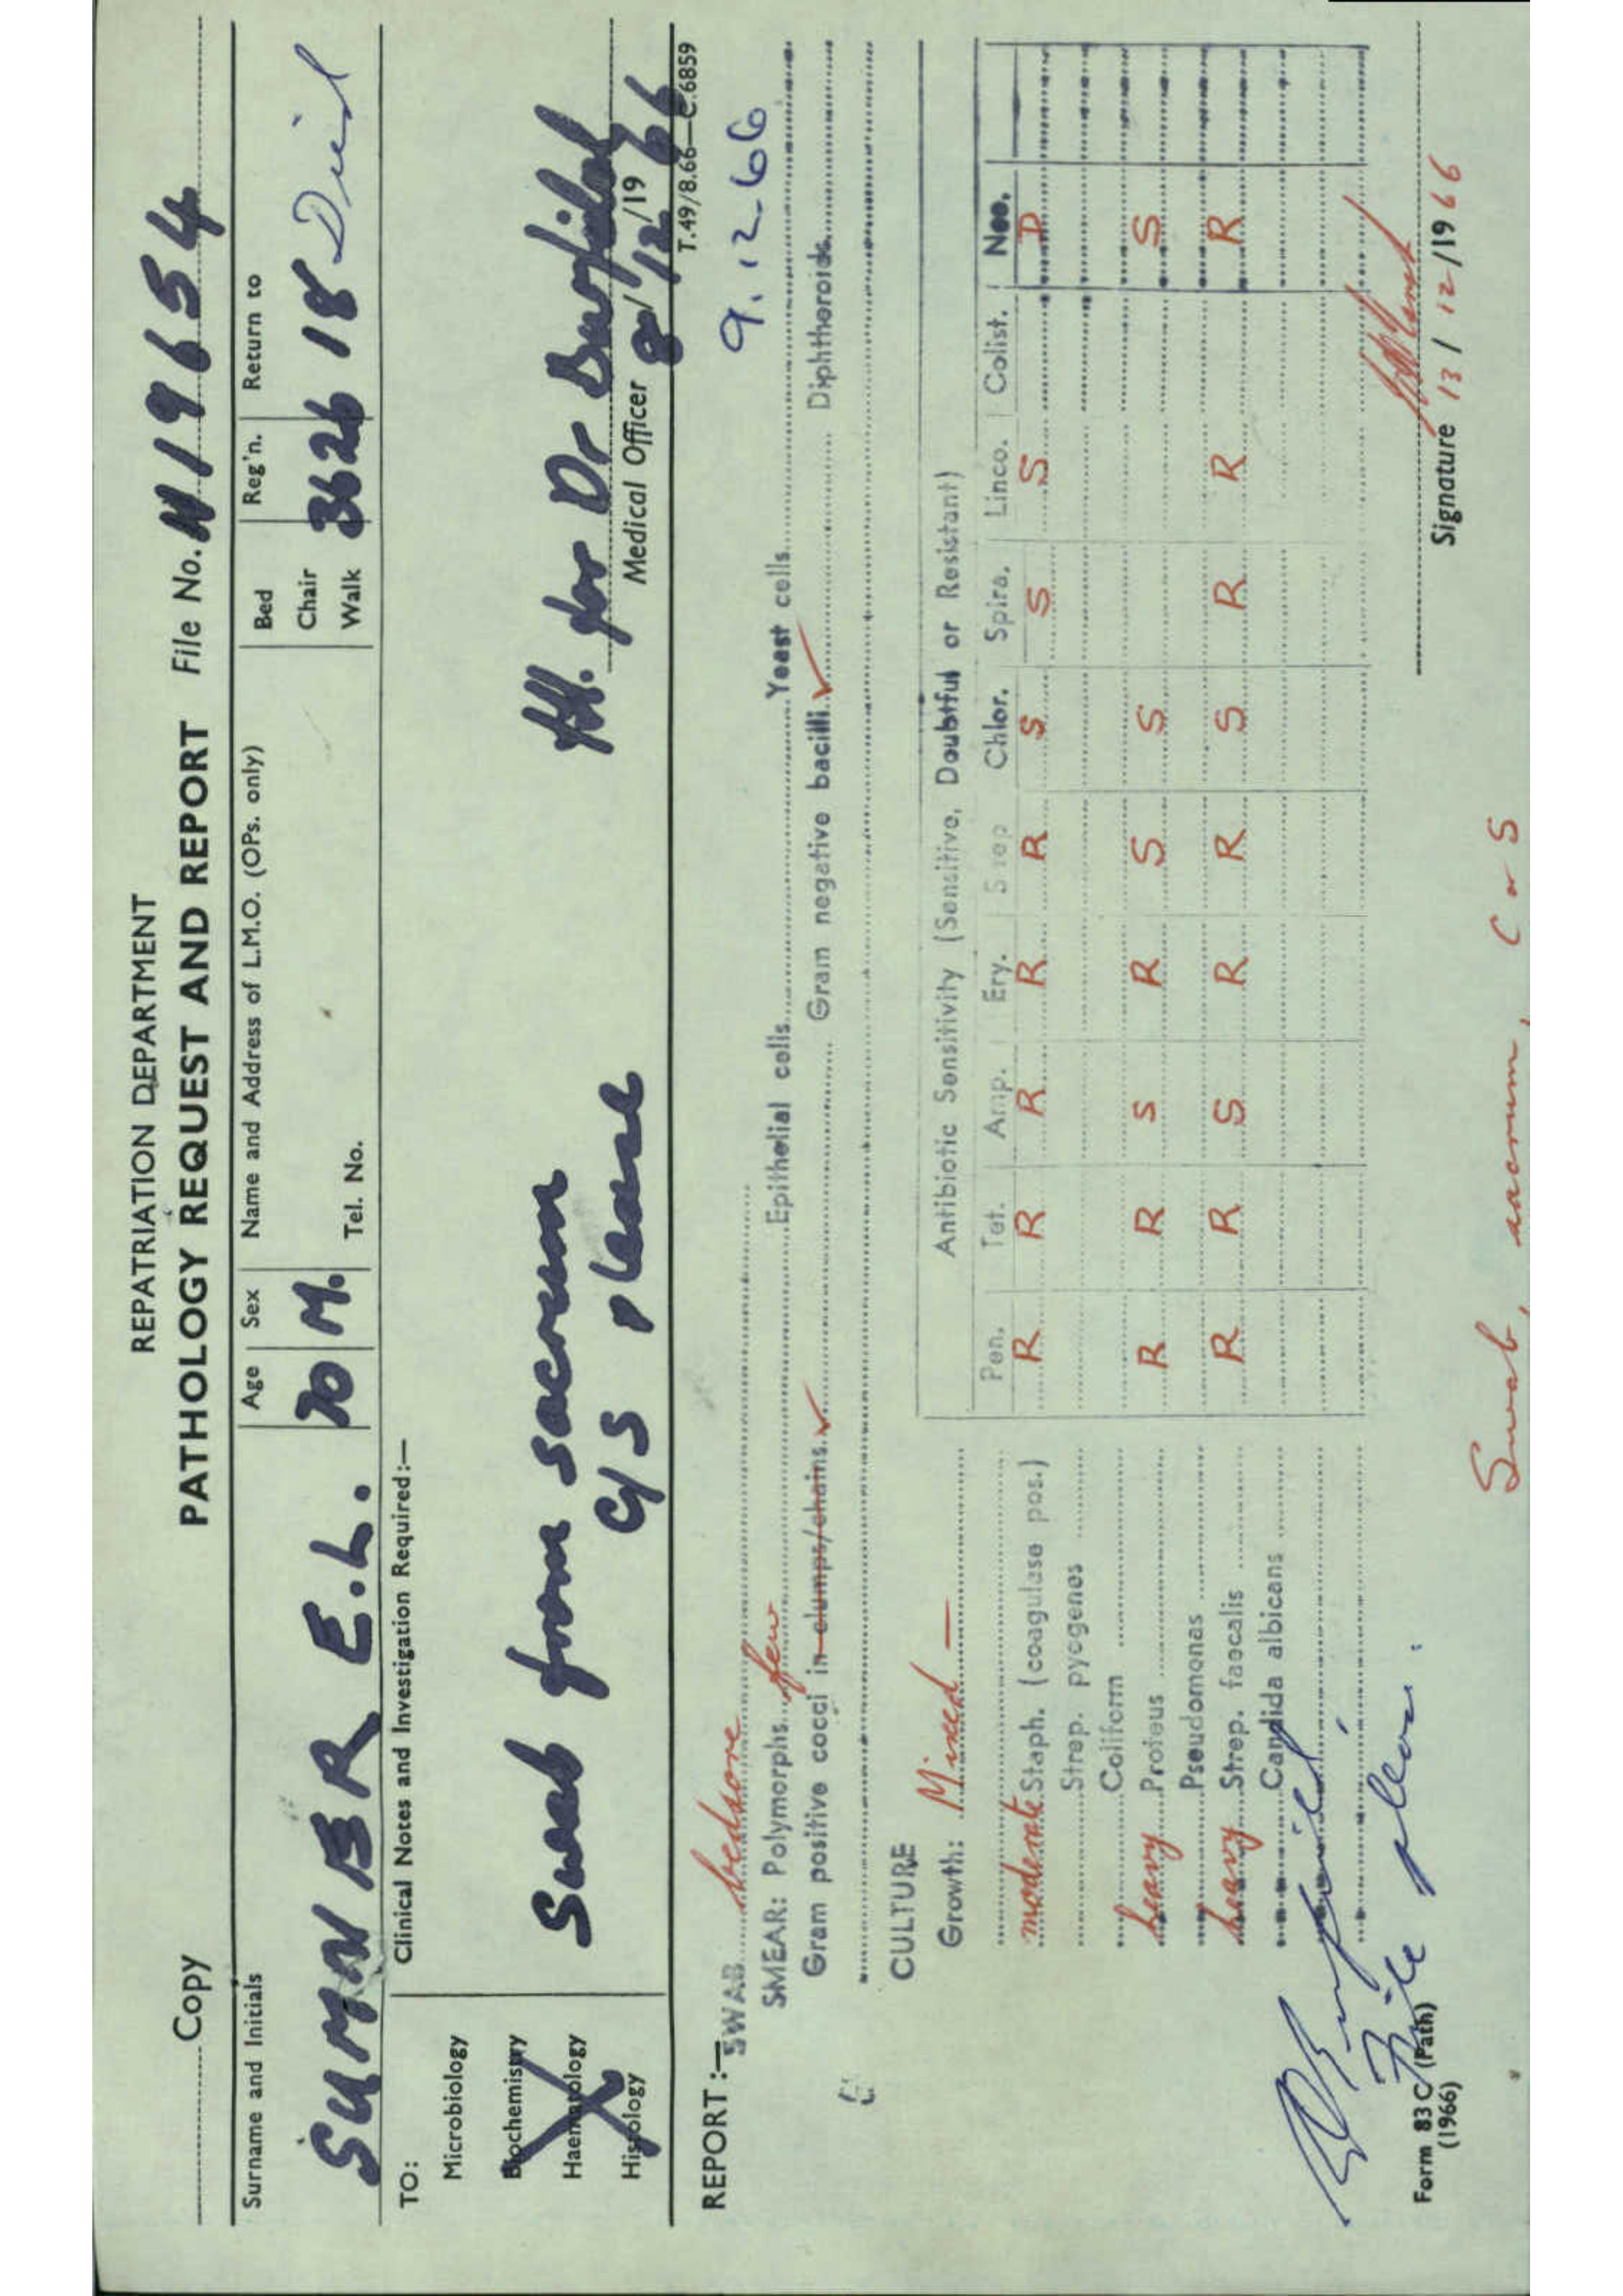 REPATRIATION DEPARTMENT
Copy PATHOLOGY REQUEST AND REPORT File No. N19654
Surname and Initials Age Sex Name and Address of L.M.O. (OPs. only) Bed Reg'n. Return to
SUMNER E.L. 70 M. Chair 3626 18
Tel. No. Walk
TO: Clinical Notes and Investigation Required:—
Microbiology
Biochemistry Swab from sacrum
Haematology C/S please for Dr
Histology Medical Officer 8/12/1966
T.49/8.66—C.6859
REPORT:— 9.12.66
SWAB bedsore
SMEAR: Polymorphs few Epithelial cells Yeast cells
Gram positive cocci in clumps/chains ✓ Gram negative bacilli ✓ Diphtheroids
CULTURE
Growth: Mixed —
Antibiotic Sensitivity (Sensitive, Doubtful or Resistant)
Pen. Tet. Amp. Ery. Strep Chlor. Spira. Linco. Colist. Neo.
moderate Staph. (coagulase pos.) R R R R R S S S D
Strep. pyogenes
Coliform
heavy Proteus R R S R S S S
Pseudomonas
heavy Strep. faecalis R R S R R S R R R
Candida albicans
File please.
Signature 13/12/1966
Form 83 C (Path)
(1966)
Swab, sacrum, C & S